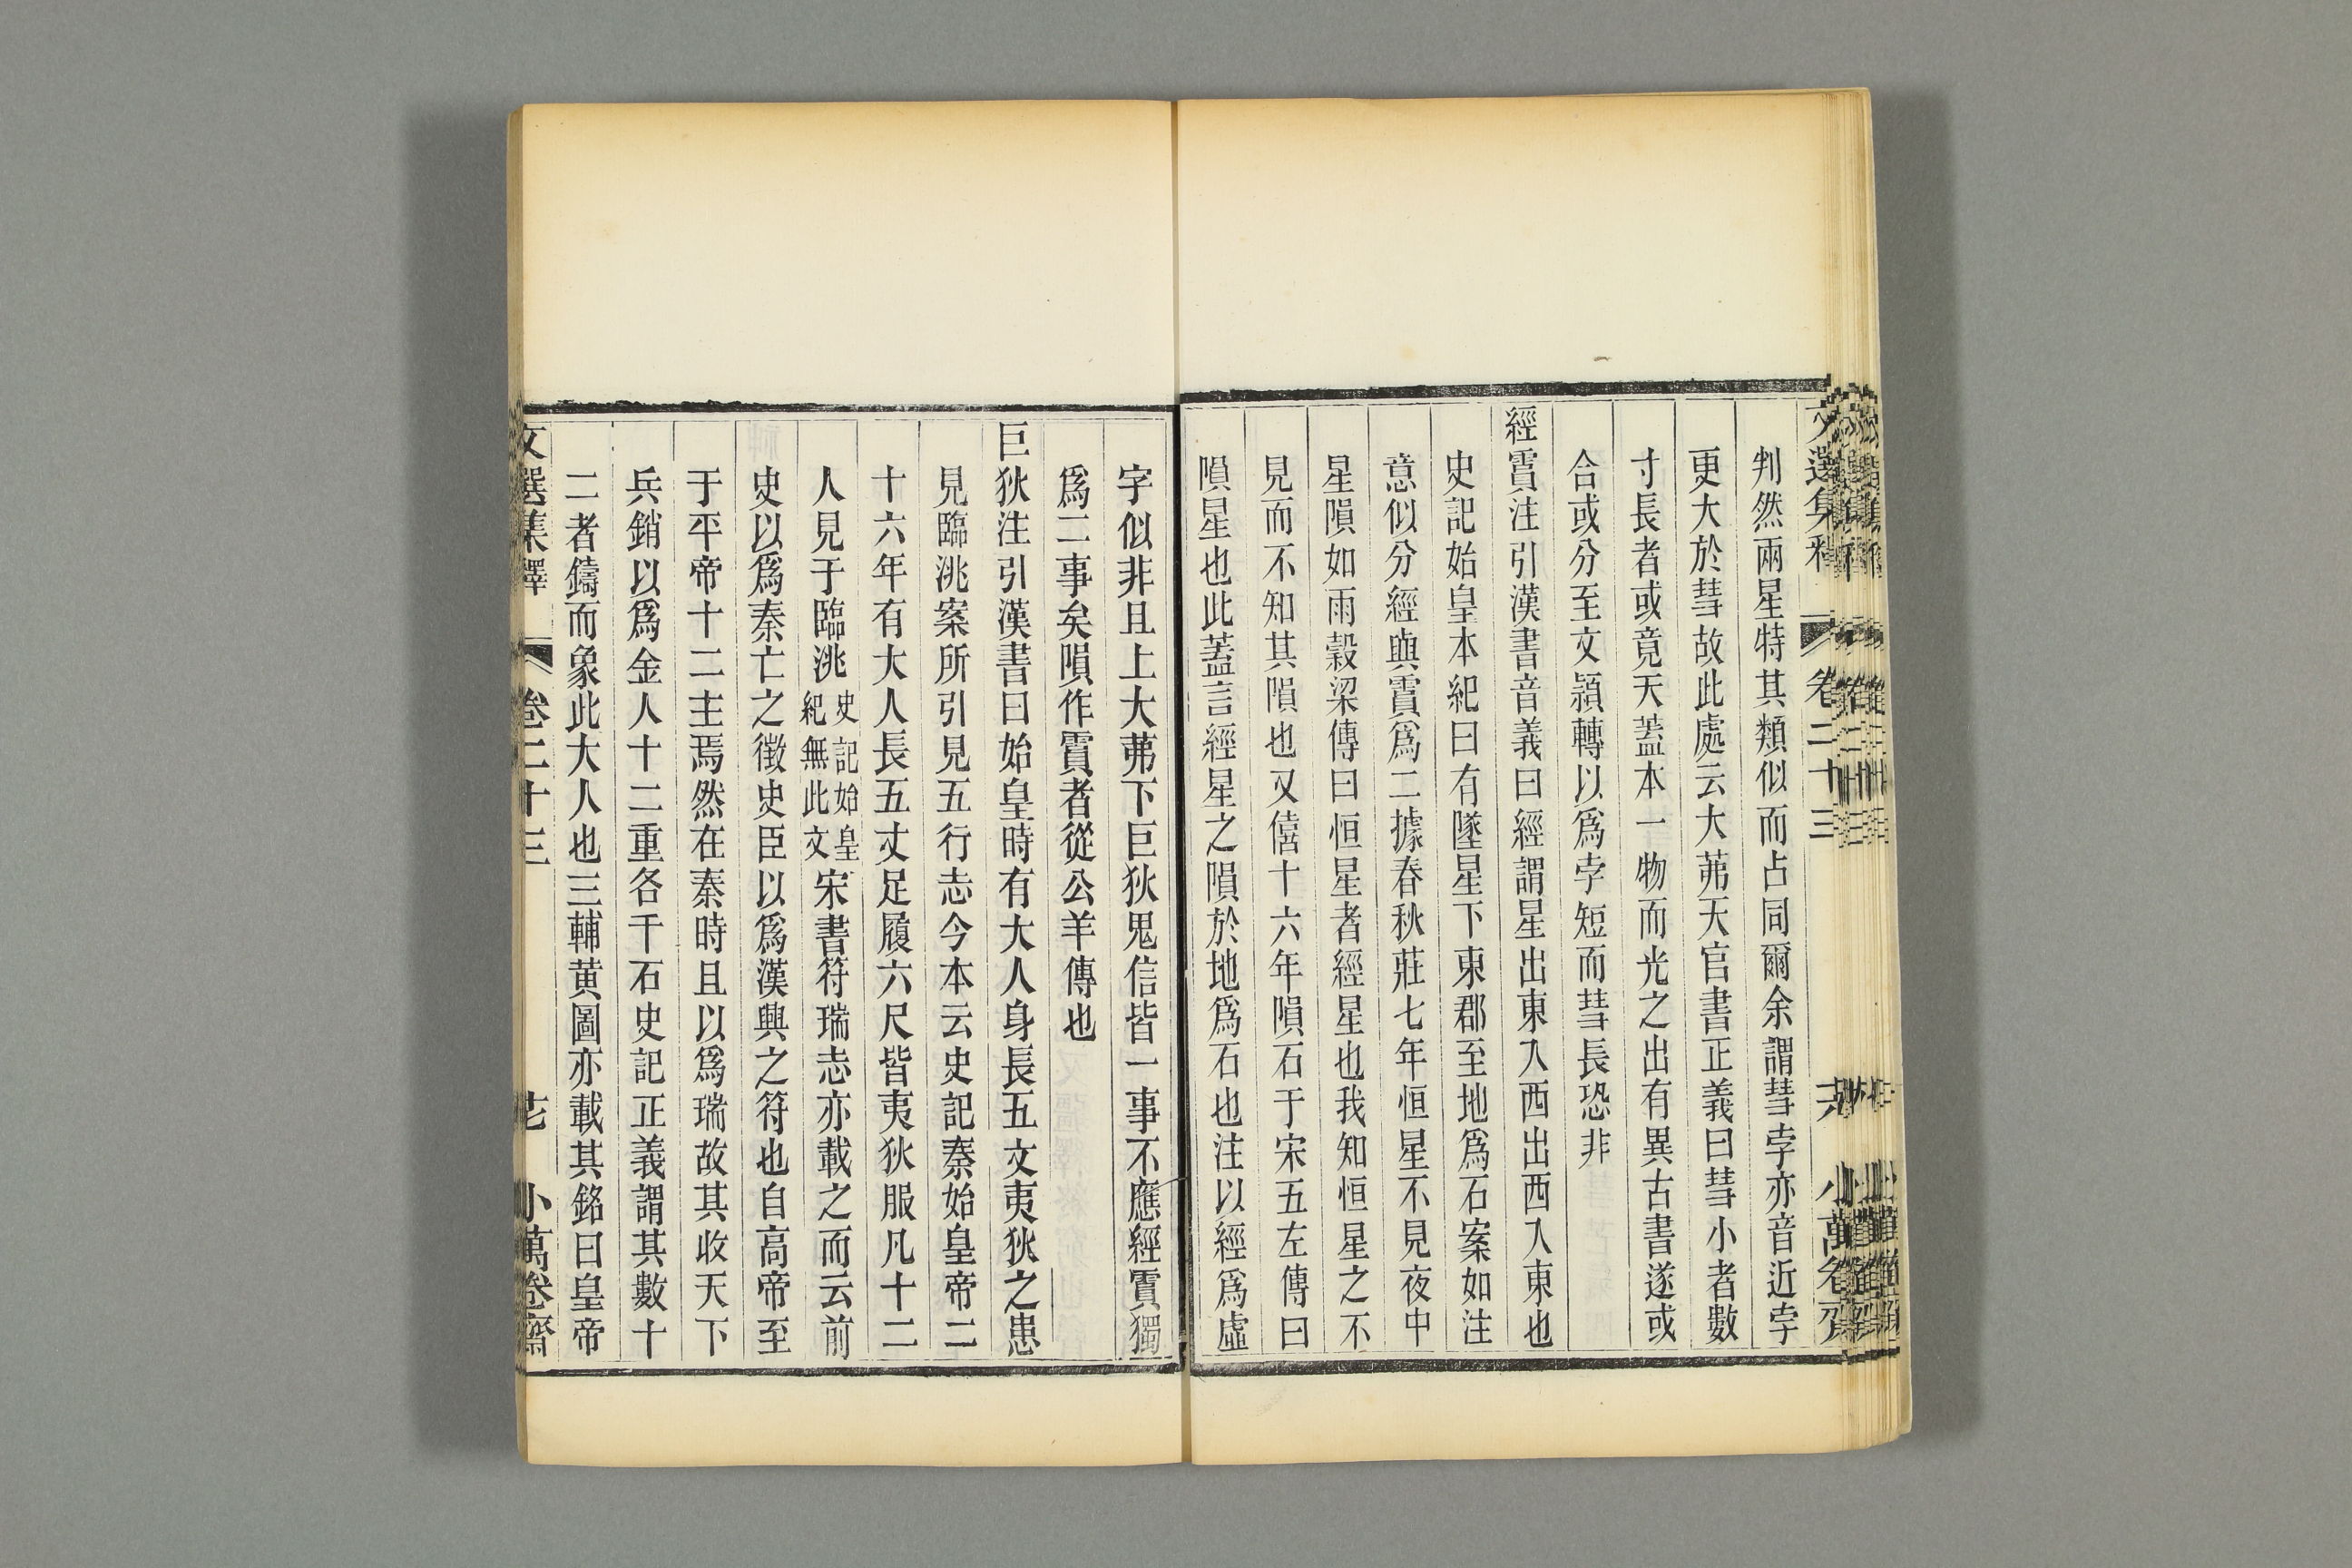 文選集釋 卷二十三
判然兩星特其類似而占同爾余謂彗孛亦音近孛
更大於彗故此處云大茀天官書正義曰彗小者數
寸長者或竟天蓋本一物而光之出有異古書遂或
合或分至文潁轉以爲孛短而彗長恐非
經霣注引漢書音義曰經謂星出東入西出西入東也
史記始皇本紀曰有墜星下東郡至地爲石案如注
意似分經與霣爲二據春秋莊七年恒星不見夜中
星隕如雨穀梁傳曰恒星者經星也我知恒星之不
見而不知其隕也又僖十六年隕石于宋五左傳曰
隕星也此蓋言經星之隕於地爲石也注以經爲虛
字似非且上大茀下巨狄鬼信皆一事不應經霣獨
爲二事矣隕作霣者從公羊傳也
巨狄注引漢書曰始皇時有大人身長五丈夷狄之患
見臨洮案所引見五行志今本云史記秦始皇帝二
十六年有大人長五丈足履六尺皆夷狄服凡十二
人見于臨洮史記始皇紀無此文宋書符瑞志亦載之而云前
史以爲秦亡之徵史臣以爲漢興之符也自高帝至
于平帝十二主焉然在秦時且以爲瑞故其收天下
兵銷以爲金人十二重各千石史記正義謂其數十
二者鑄而象此大人也三輔黃圖亦載其銘曰皇帝
文選集釋 卷二十三 小萬卷齋